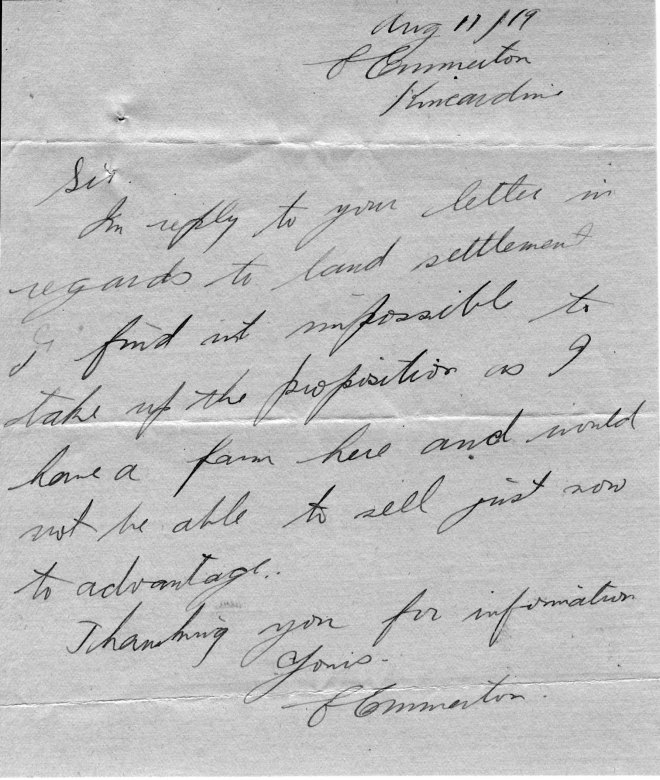 Aug 17/19
Emmerton
Kincardine
Sir.
In reply to your letter in
regards to land settlement
I find it impossible to
take up the proposition as I
have a farm here and would
not be able to sell just now
to advantage.
Thanking you for information
Yours.
Emmerton.